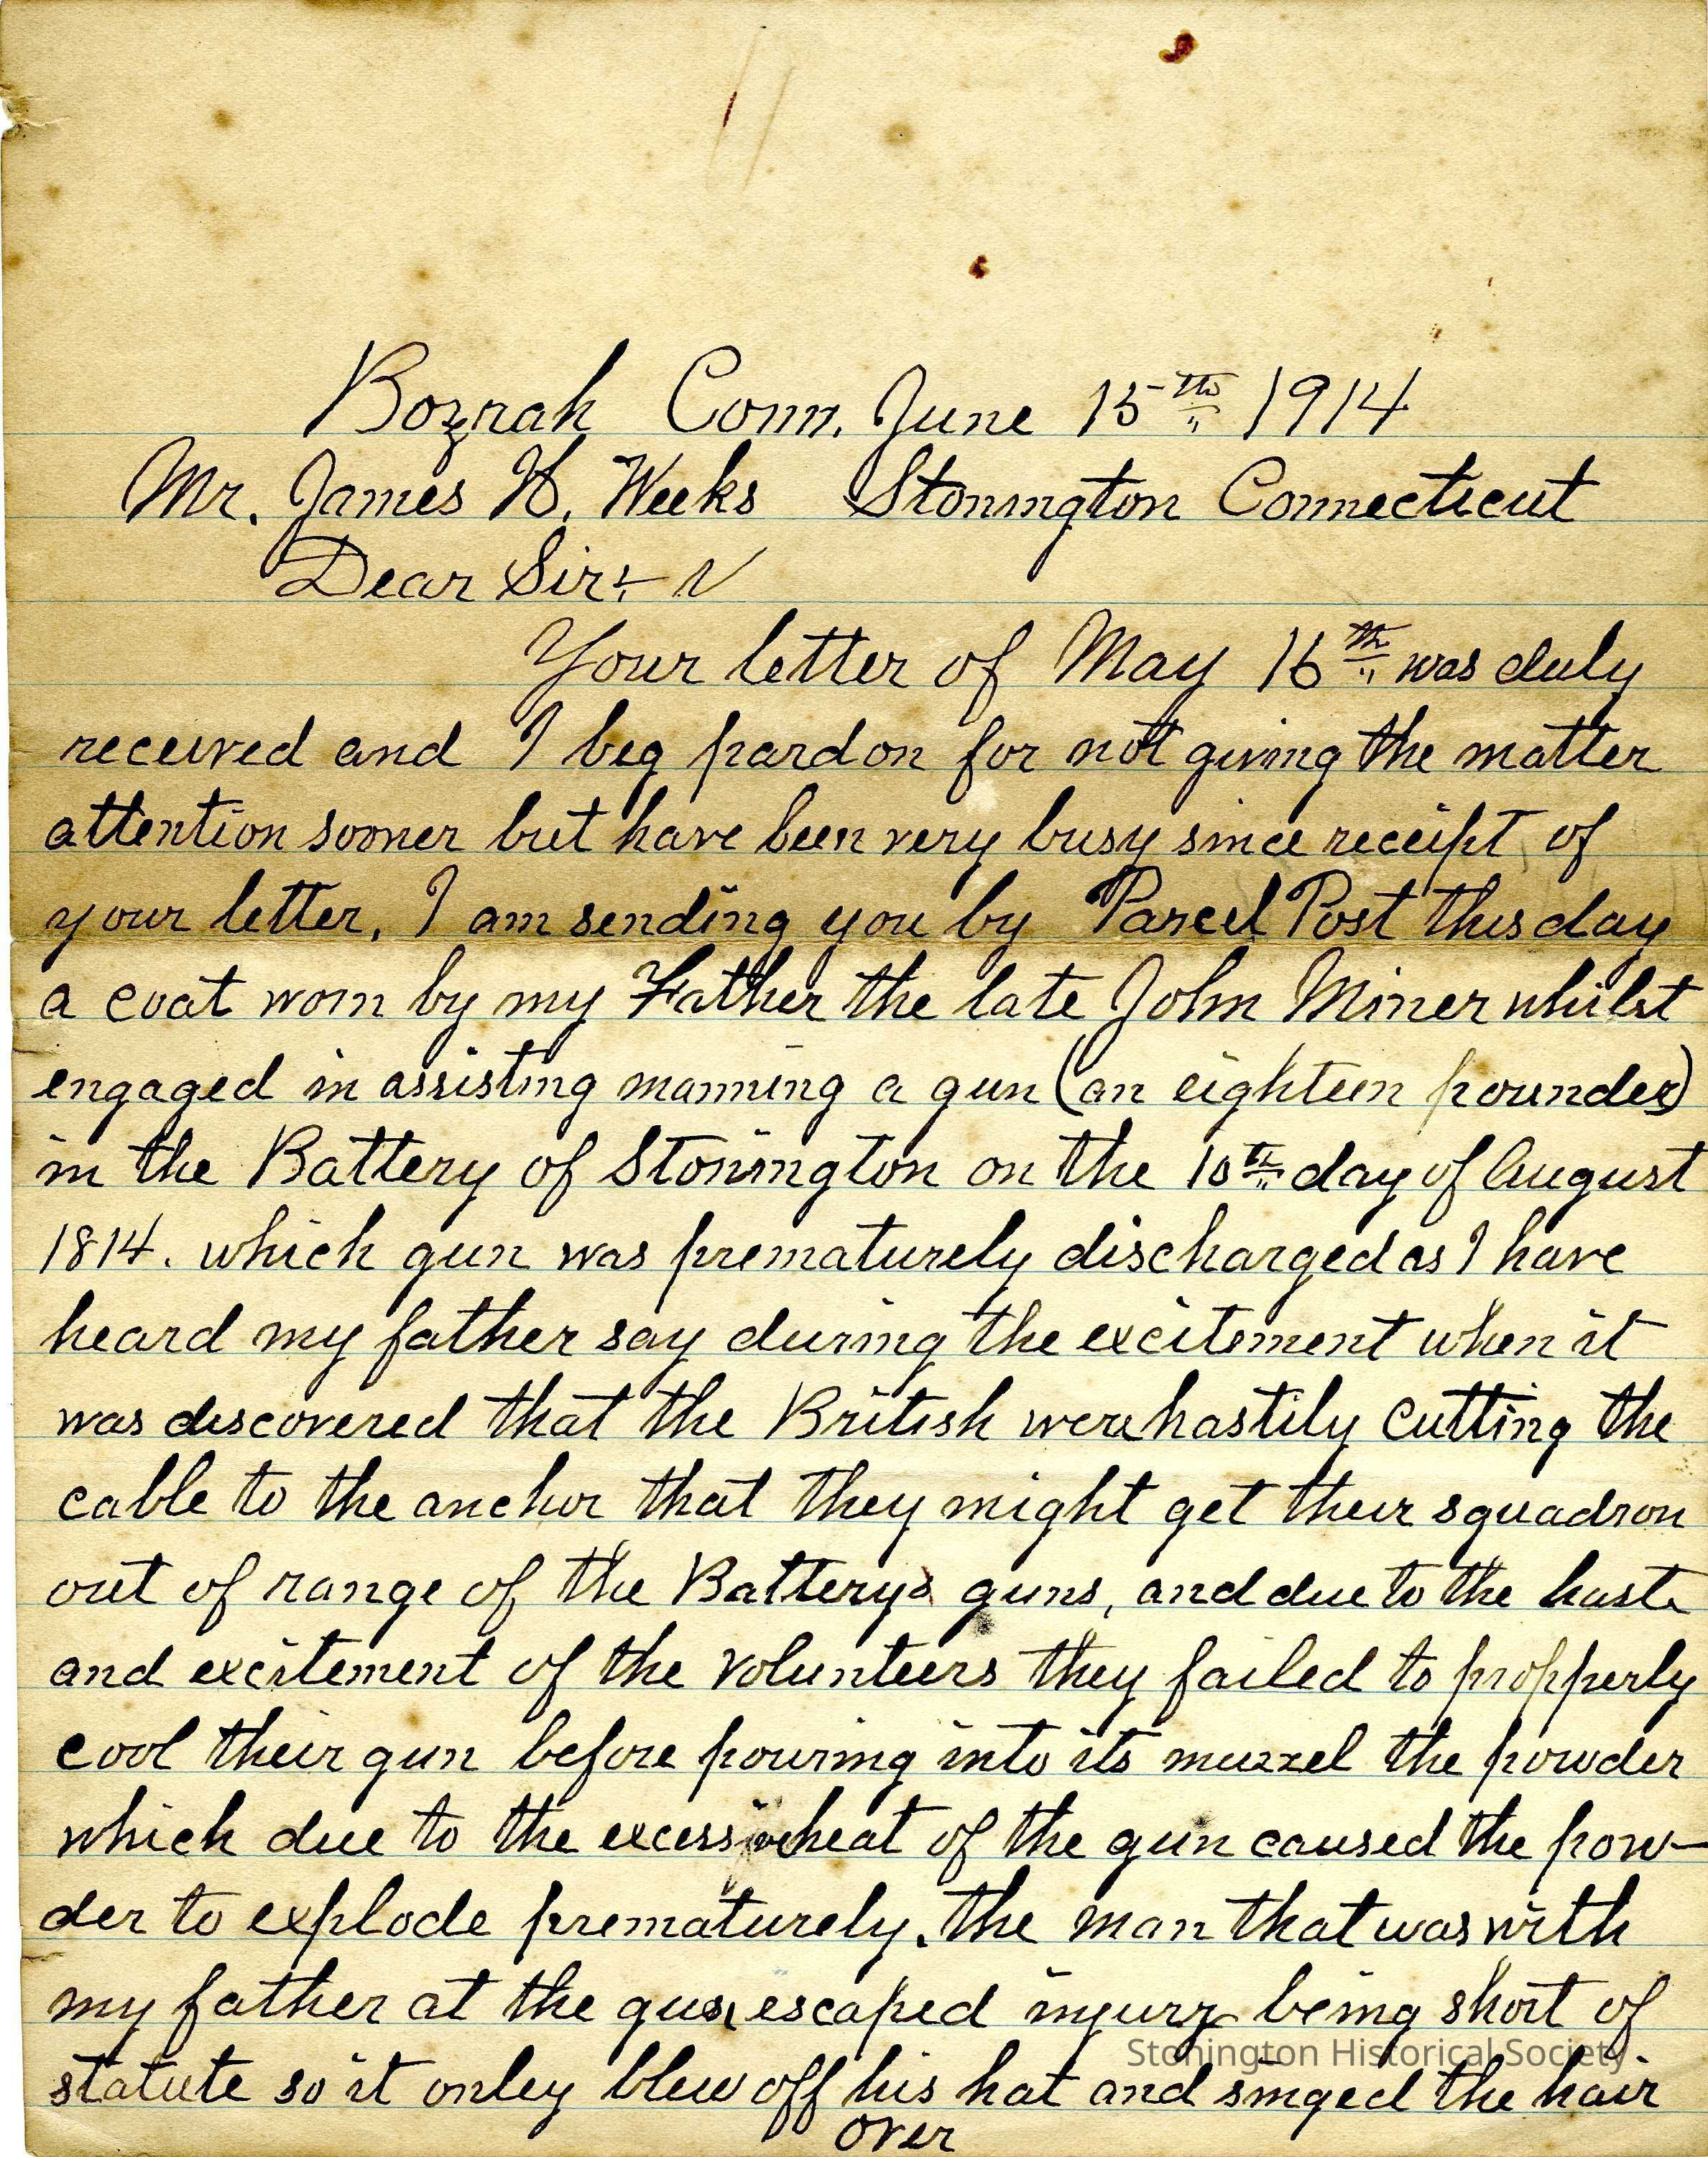 Bozrah Conn. June 15th 1914
Mr. James H. Weeks Stonington Connecticut
Dear Sir:-
Your letter of May 16th was duly
received and I beg pardon for not giving the matter
attention sooner but have been very busy since receipt of
your letter. I am sending you by Parcel Post this day
a coat worn by my Father the late John Miner whilst
engaged in assisting manning a gun (an eighteen pounder)
in the Battery of Stonington on the 10th day of August
1814. which gun was prematurely discharged as I have
heard my father say during the excitement when it
was discovered that the British were hastily cutting the
cable to the anchor that they might get their squadron
out of range of the Batterys guns, and due to the haste
and excitement of the volunteers they failed to propperly
cool their gun before pouring into its muzzel the powder
which due to the excessive heat of the gun caused the pow-
der to explode prematurely. the man that was with
my father at the gun escaped injury being short of
statute so it onley blew off his hat and singed the hair
over
Stonington Historical Society